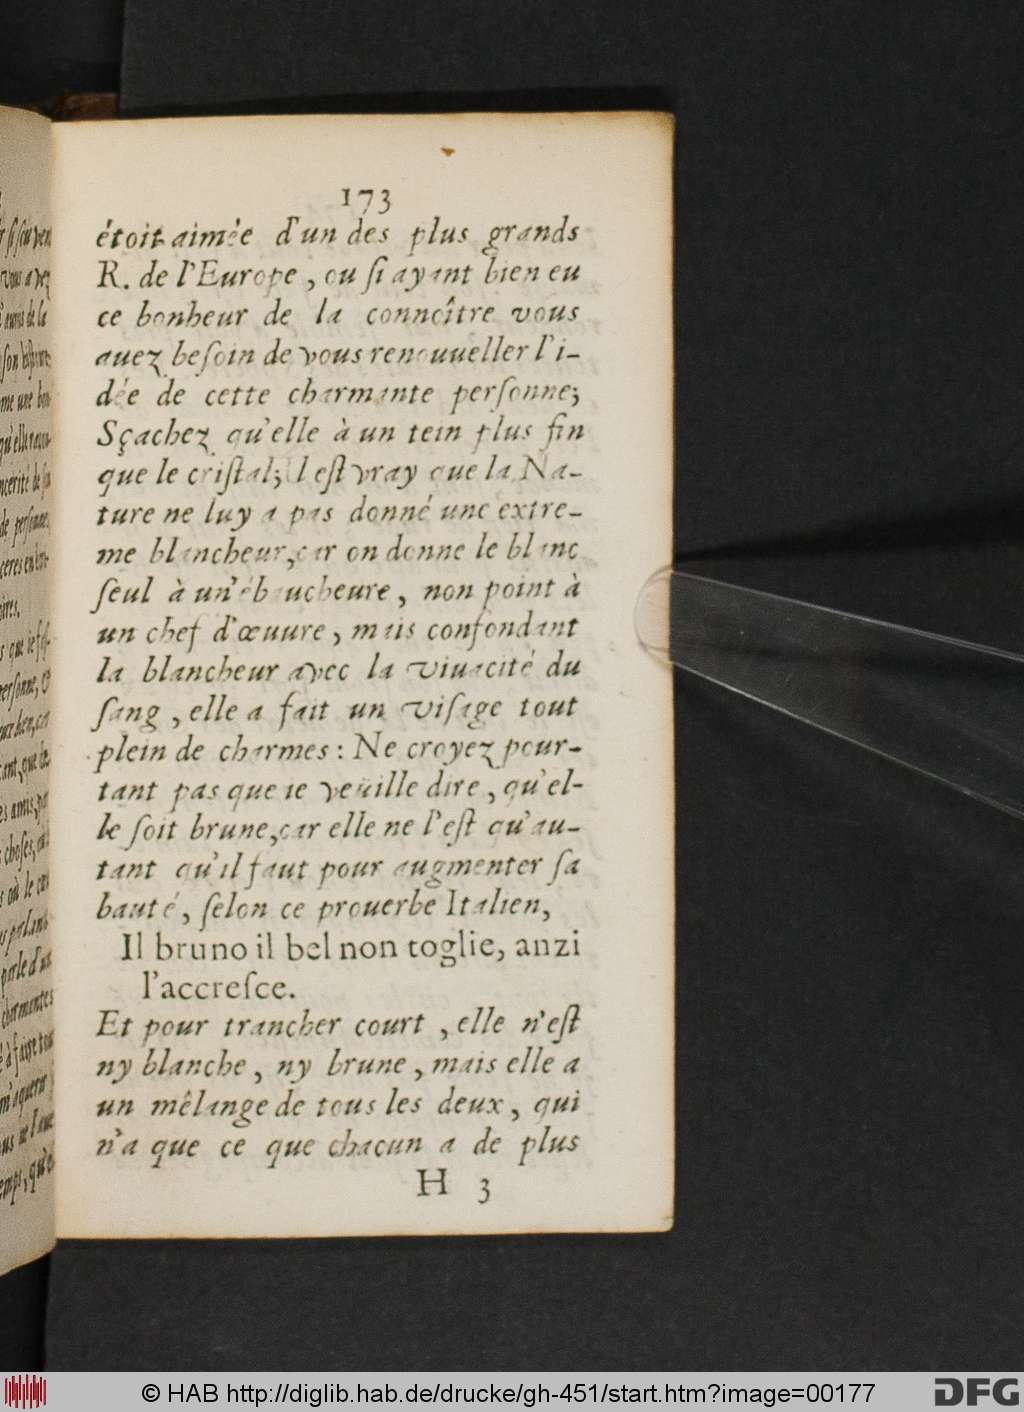 173
étoit aimée d'un des plus grands
R. de l'Europe, ou ſi ayant bien eu
ce bonheur de la connoître vous
auez beſoin de vous renouueller l'i-
dée de cette charmante perſonne;
Sçachez qu'elle à un tein plus fin
que le criſtal; Il eſt vray que la Na-
ture ne luy a pas donné une extre-
me blancheur, car on donne le blanc
ſeul à un'ébaucheure, non point à
un chef d'œuure, mais confondant
la blancheur avec la viuacité du
ſang, elle a fait un viſage tout
plein de charmes: Ne croyez pour-
tant pas que ie veüille dire, qu'el-
le ſoit brune, car elle ne l'eſt qu'au-
tant qu'il faut pour augmenter ſa
bauté, ſelon ce prouerbe Italien,
Il bruno il bel non toglie, anzi
l'accreſce.
Et pour trancher court, elle n'eſt
ny blanche, ny brune, mais elle a
un mêlange de tous les deux, qui
n'a que ce que chacun a de plus
H 3
© HAB http://diglib.hab.de/drucke/gh-451/start.htm?image=00177
DFG